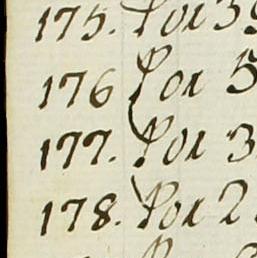 175. Por 3
176 Por 5
177. Por 3
178. Por 2